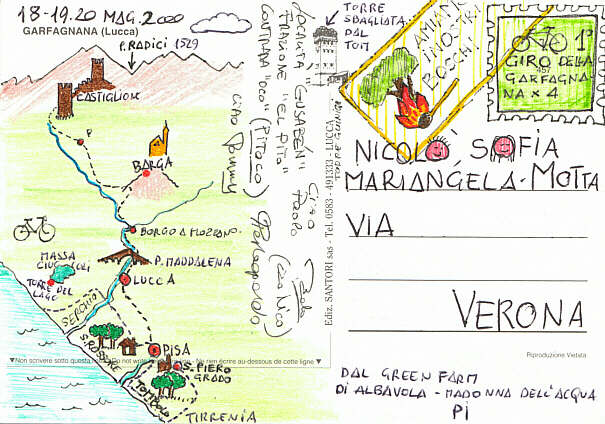 18-19.20 MAG.2000
GARFAGNANA (Lucca)
P. RADICI 1529
CASTIGLION
P
BARGA
BORGO A MOZZANO
P. MADDALENA
LUCCA
MASSA
CIUCCOLI
TORRE DEL
LAGO
SERCHIO
S. ROSSORE
PISA
S. PIERO
GRADO
TOMBOLO
TIRRENIA
▼Non scrivere sotto questa
Do not write
Ne rien écrire au-dessous de cette ligne ▼
LOCALITÀ "GUSABÉN"
FRAZIONE "EL PITO"
CONTRADA "OCO" (PITOCO)
Ciao Tommy
Ciao Paolo
Paola
(ciao Nico)
Piergiopaolo
Ediz. SANTORI sas - Tel. 0583 - 491333 - LUCCA
TORRE GUINIGI
TORRE
SBAGLIATA
DAL
TOM
AMIAMO
I NOSTRI
BOSCHI
1°
GIRO DELLA
GARFAGNA
NA x 4
NICOLÒ SOFIA
MARIANGELA - MOTTA
VIA
VERONA
Riproduzione Vietata
DAL GREEN FARM
DI ALBAVOLA - MADONNA DELL'ACQUA
PI